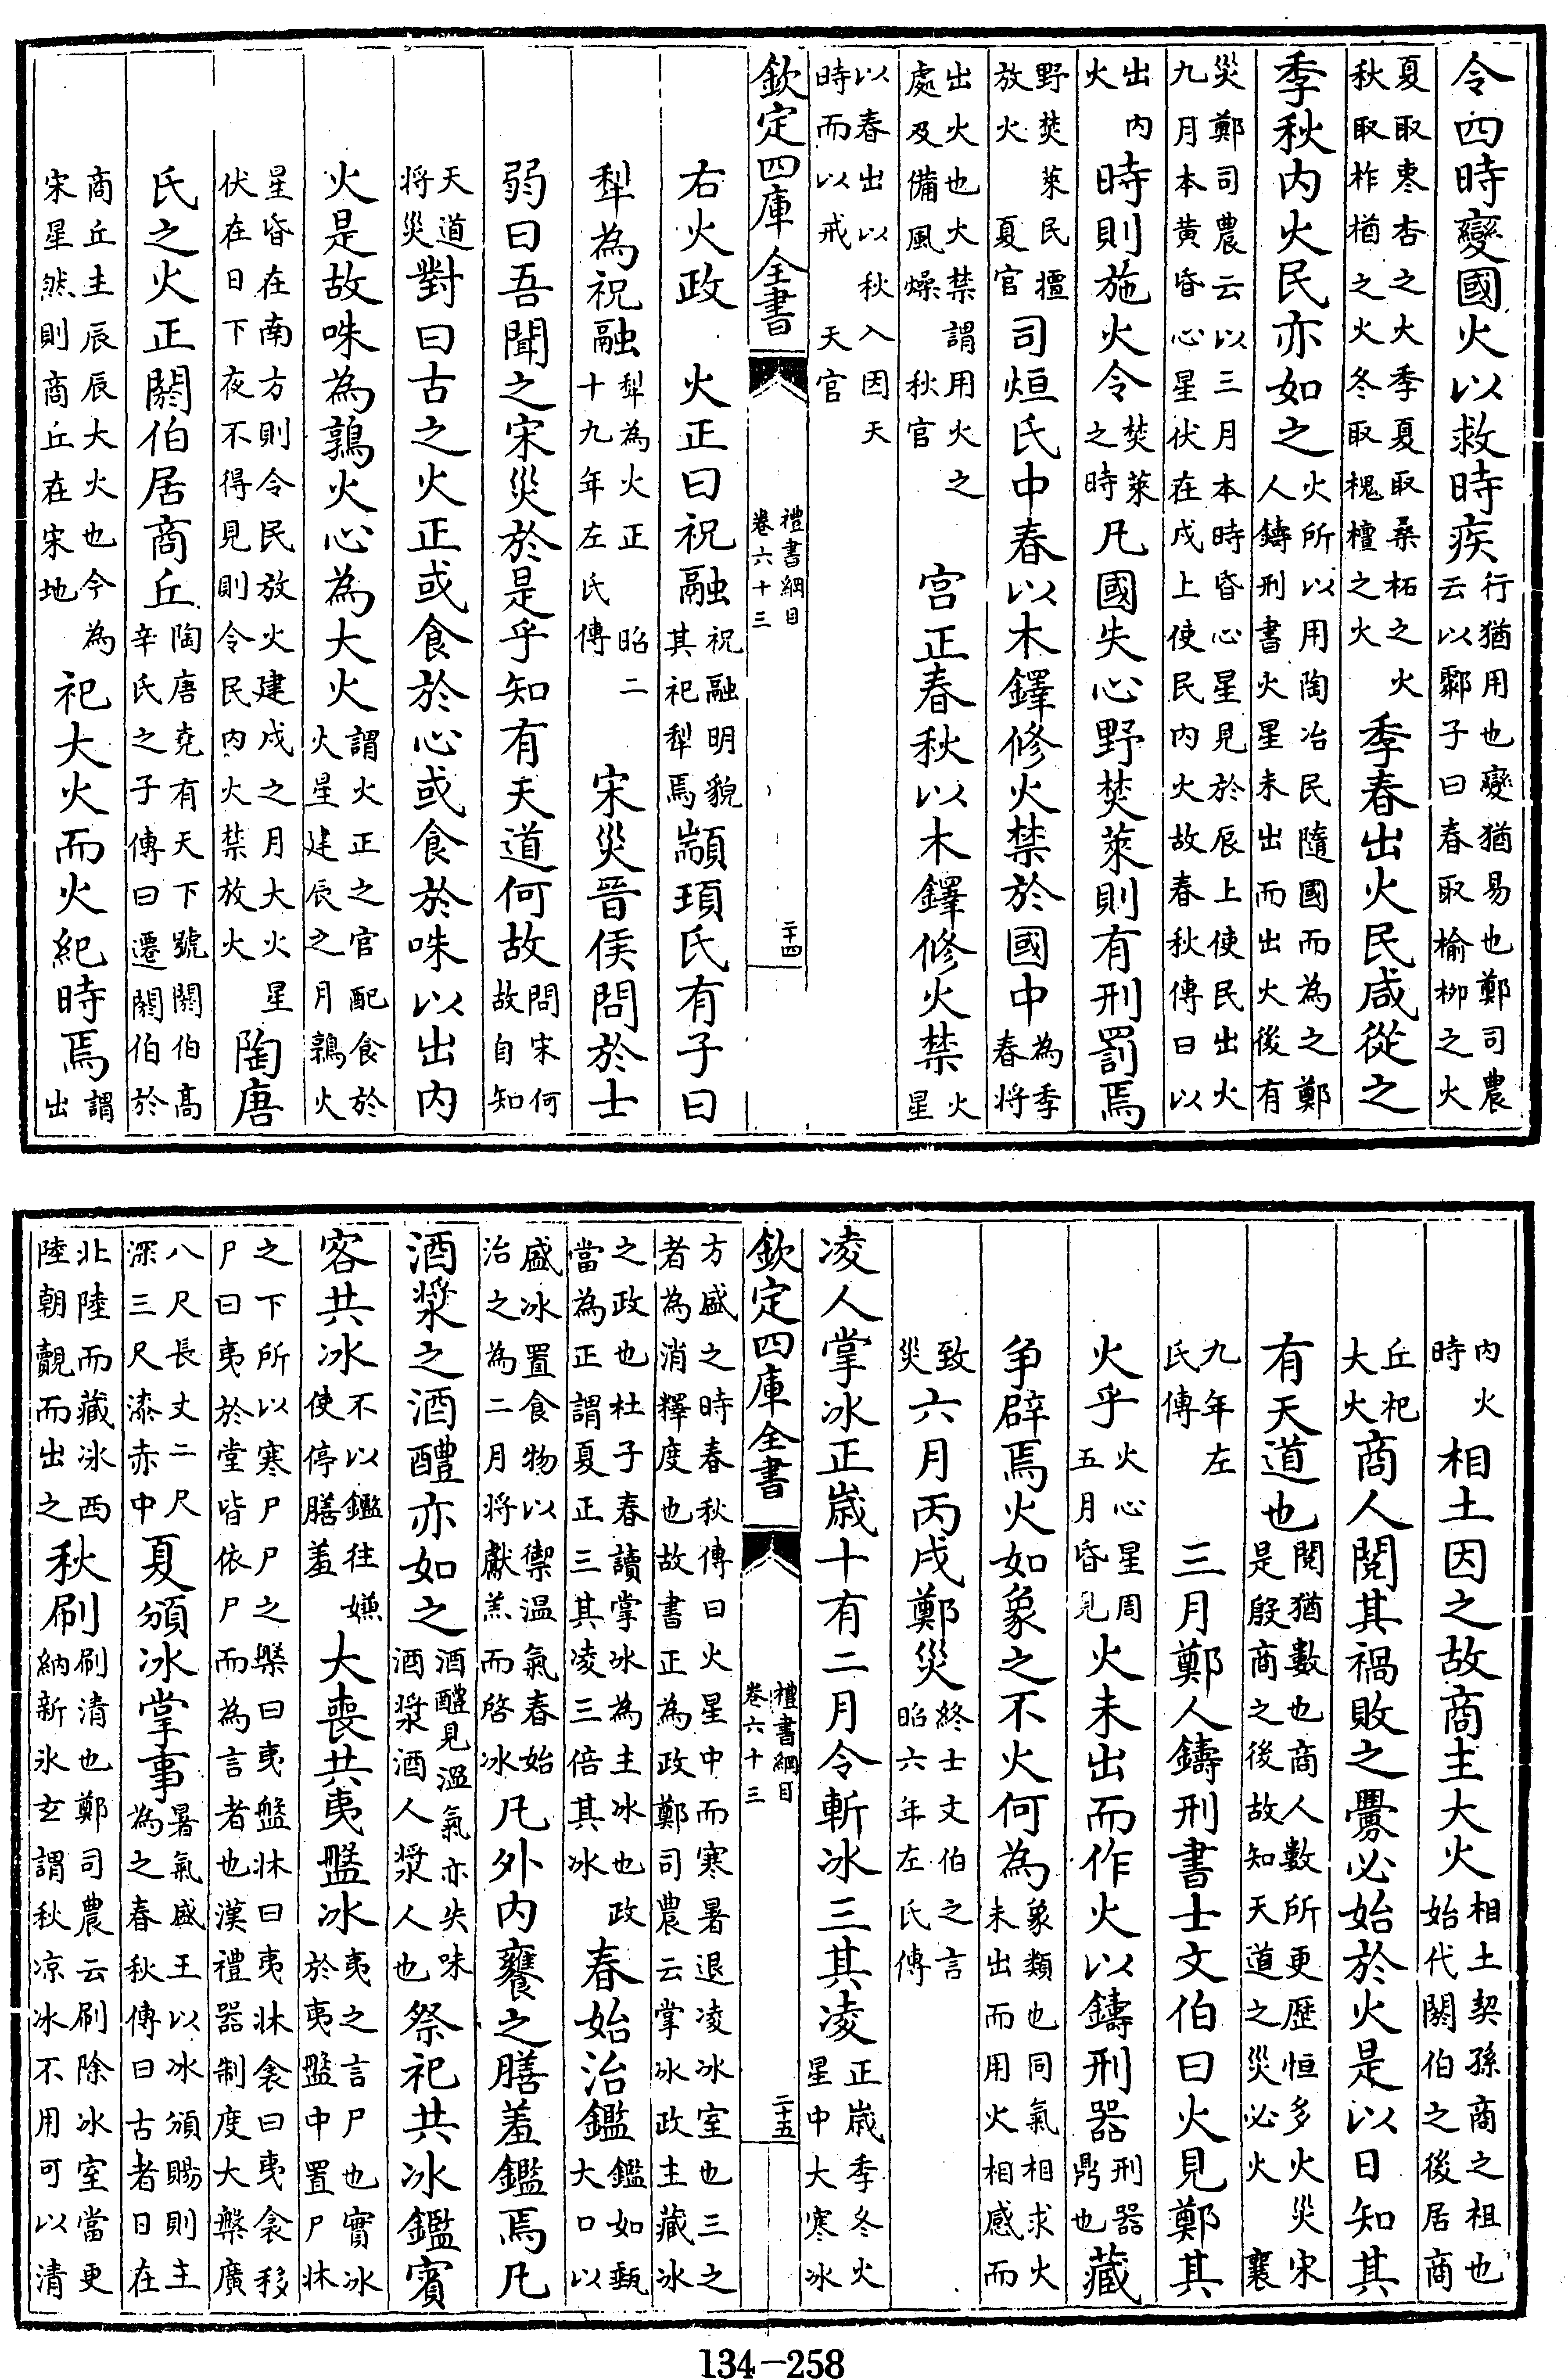 令四時變國火以救時疾行猶用也變猶易也鄭司農云以鄹子曰春取榆柳之火
夏取棗杏之火季夏取桑柘之火秋取柞楢之火冬取槐檀之火季春出火民咸從之
季秋内火民亦如之火所以用陶冶民隨國而為之鄭人鑄刑書火星未出而出火後有
災鄭司農云以三月本時昏心星見於辰上使民出火九月本黄昏心星伏在戌上使民内火故春秋傳曰以
出内火時則施火令焚萊之時凡國失火野焚萊則有刑罰焉
野焚萊民擅放火夏官司烜氏中春以木鐸修火禁於國中為季春将
出火也火禁謂用火之處及備風燥秋官宫正春秋以木鐸修火禁火星
以春出以秋入因天時而以戒天官
欽定四庫全書 禮書綱目卷六十三 二十四
右火政火正曰祝融祝融明貌其祀犁焉顓頊氏有子曰
犁為祝融犁為火正昭二十九年左氏傳宋災晉侯問於士
弱曰吾聞之宋災於是乎知有天道何故問宋何故自知
天道将災對曰古之火正或食於心或食於咮以出内
火是故咮為鶉火心為大火謂火正之官配食於火星建辰之月鶉火
星昏在南方則令民放火建戌之月大火星伏在日下夜不得見則令民内火禁放火陶唐
氏之火正閼伯居商丘陶唐堯有天下號閼伯髙辛氏之子傳曰遷閼伯於
商丘主辰辰大火也今為宋星然則商丘在宋地祀大火而火紀時焉謂出
内火時相土因之故商主大火相土契孫商之祖也始代閼伯之後居商
丘祀大火商人閱其禍敗之釁必始於火是以日知其
有天道也閱猶數也商人數所更歴恒多火災宋是殷商之後故知天道之災必火襄
九年左氏傳三月鄭人鑄刑書士文伯曰火見鄭其
火乎火心星周五月昏見火未出而作火以鑄刑器刑器鼎也藏
争辟焉火如象之不火何為象類也同氣相求火未出而用火相感而
致災六月丙戌鄭災終士文伯之言昭六年左氏傳
凌人掌冰正歳十有二月令斬冰三其凌正歳季冬火星中大寒冰
欽定四庫全書 禮書綱目卷六十三 二十五
方盛之時春秋傳曰火星中而寒暑退凌冰室也三之者為消釋度也故書正為政鄭司農云掌冰政主藏冰
之政也杜子春讀掌冰為主冰也政當為正謂夏正三其凌三倍其冰春始治鑑鑑如甄大口以
盛冰置食物以禦温氣春始治之為二月将獻羔而啓冰凡外内饔之膳羞鑑焉凡
酒漿之酒醴亦如之酒醴見温氣亦失味酒漿酒人漿人也祭祀共冰鑑賓
客共冰不以鑑往嫌使停膳羞大喪共夷盤冰夷之言尸也實冰於夷盤中置尸牀
之下所以寒尸尸之槃曰夷盤牀曰夷牀衾曰夷衾移尸曰夷於堂皆依尸而為言者也漢禮器制度大槃廣
八尺長丈二尺深三尺漆赤中夏頒冰掌事暑氣盛王以冰頒賜則主為之春秋傳曰古者日在
北陸而藏冰西陸朝覿而出之秋刷刷清也鄭司農云刷除冰室當更納新氷玄謂秋凉冰不用可以清
134-258